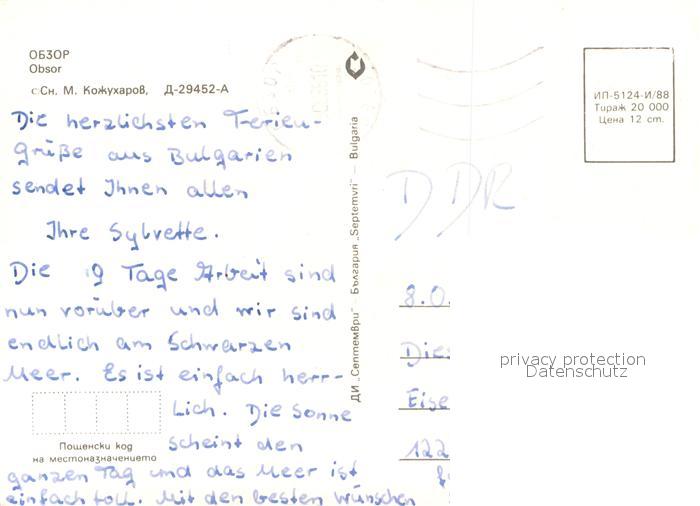 ОБЗОР
Obsor
Сн. М. Кожухаров, Д-29452-А
Die herzlichsten Ferien-
grüße aus Bulgarien
sendet Ihnen allen
Ihre Sylvette.
Die 9 Tage Arbeit sind
nun vorüber und wir sind
endlich am Schwarzen
Meer. Es ist einfach herr-
lich. Die Sonne
scheint den
ganzen Tag und das Meer ist
einfach toll. Mit den besten Wünschen
Пощенски код
на местоназначението
ДИ „Септември" – България „Septemvri" – Bulgaria
ИП-5124-И/88
Тираж 20 000
Цена 12 ст.
DDR
8.0.
Die
Eise
122
privacy protection
Datenschutz